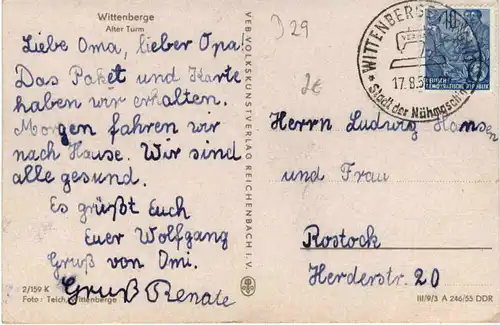 Wittenberge
Alter Turm
Liebe Oma, lieber Opa.
Das Paket und Karte
haben wir erhalten.
Morgen fahren wir
nach Hause. Wir sind
alle gesund.
Es grüßt Euch
Euer Wolfgang
Gruß von Omi.
Gruß Renate
2/159 K
Foto: Teich, Wittenberge
VEB VOLKSKUNSTVERLAG REICHENBACH I. V.
J 29
2€
WITTENBERGE
17.8.5
Stadt der Nähmaschin
10
DEUTSCHE
DEMOKRATISCHE REPUBLIK
Herrn Ludwig Hansen
und Frau
Rostock
Herderstr. 20
III/9/3 A 246/55 DDR